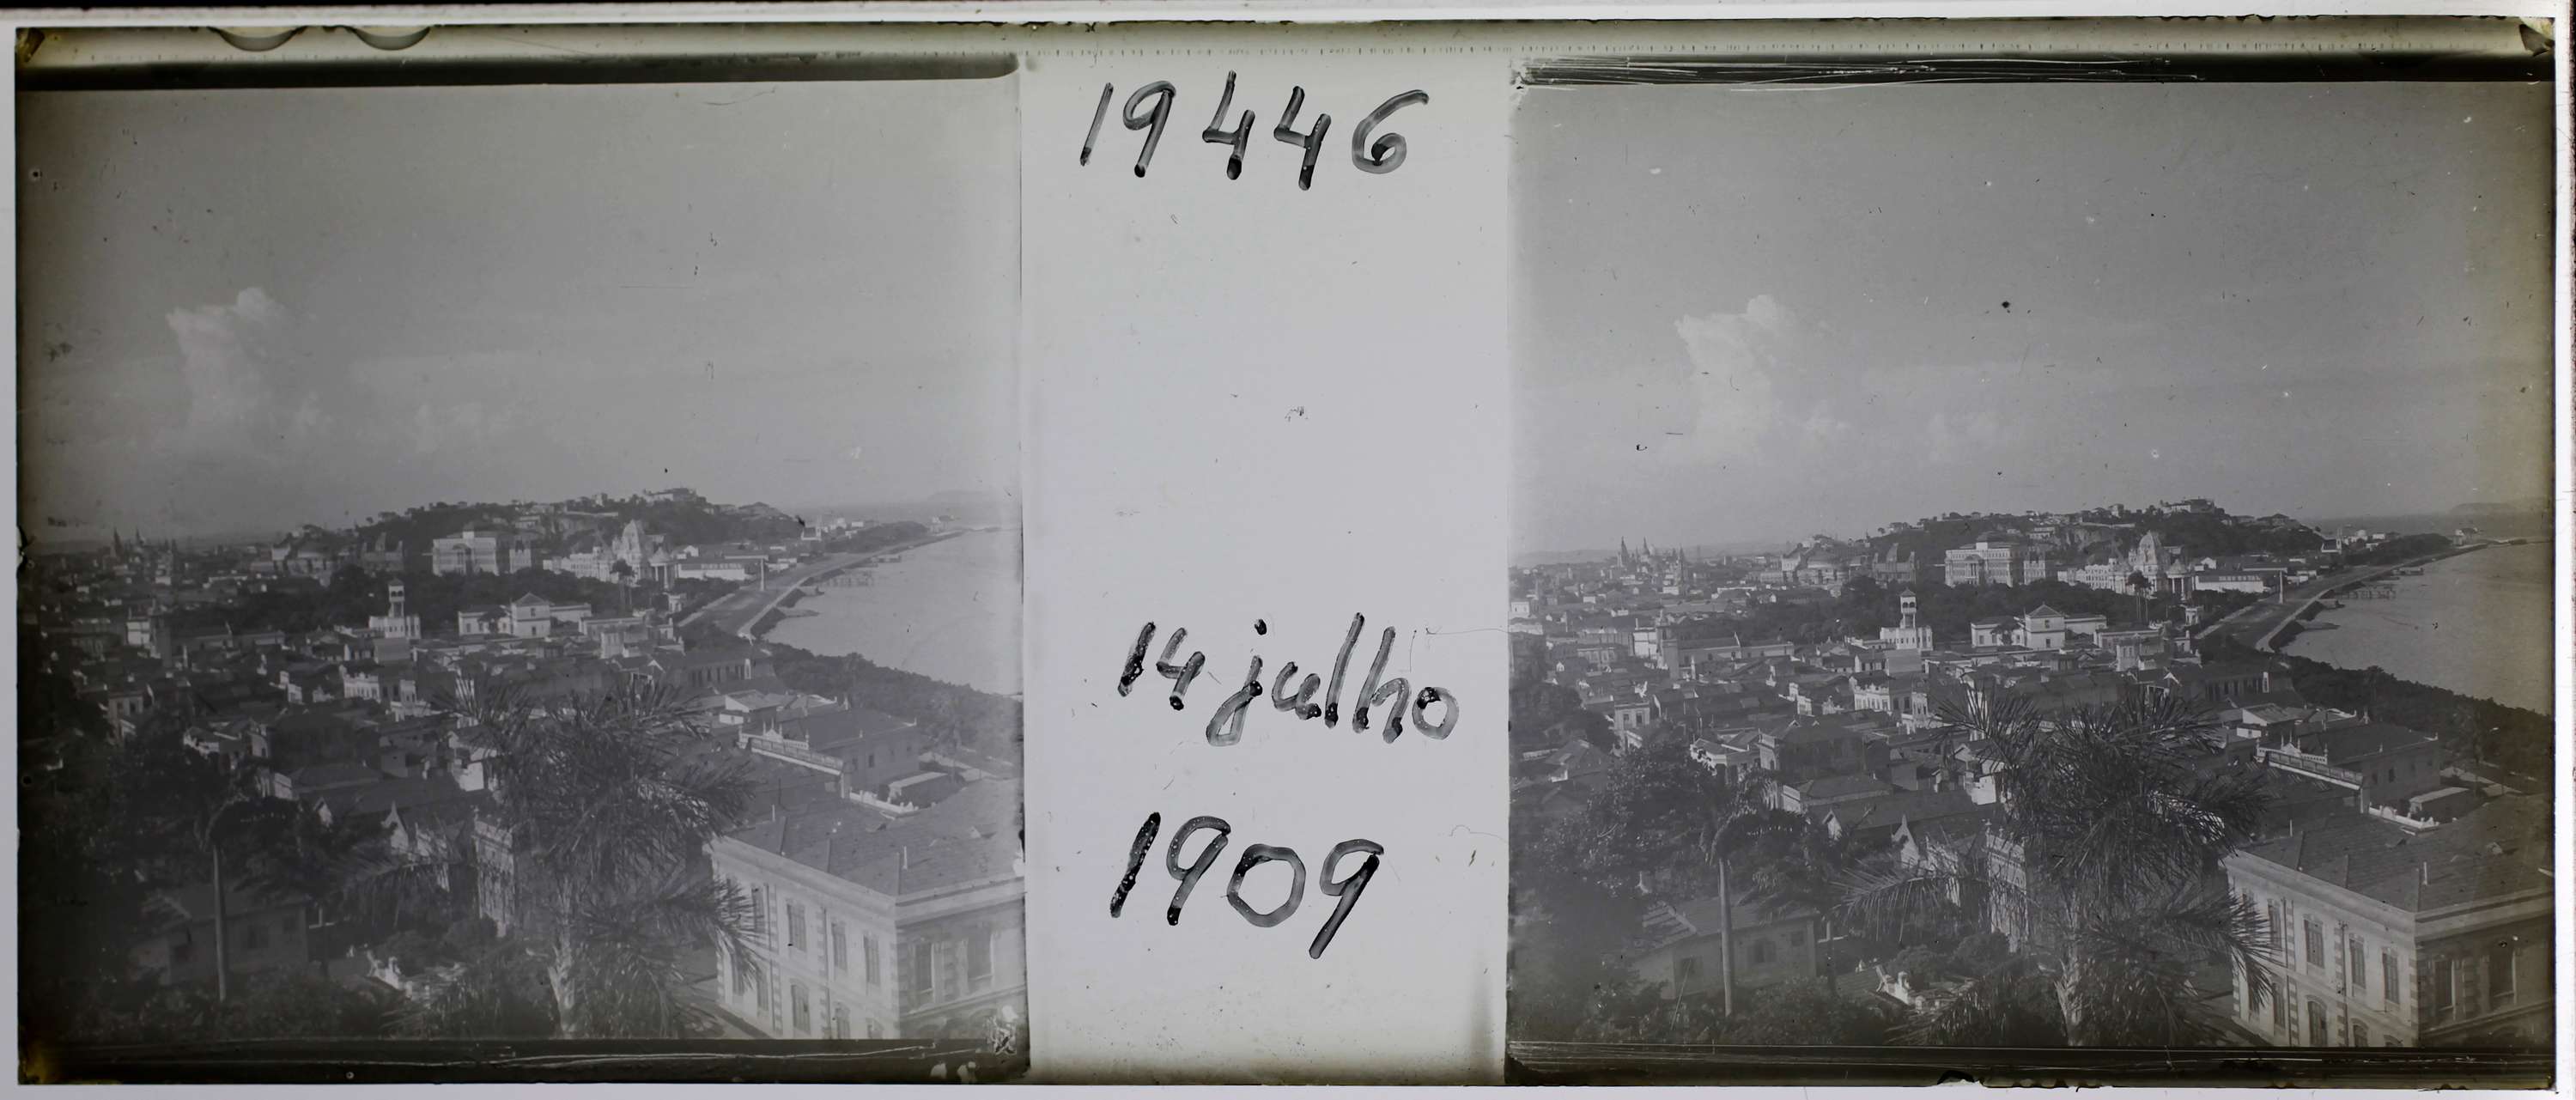 19446
14 julho
1909